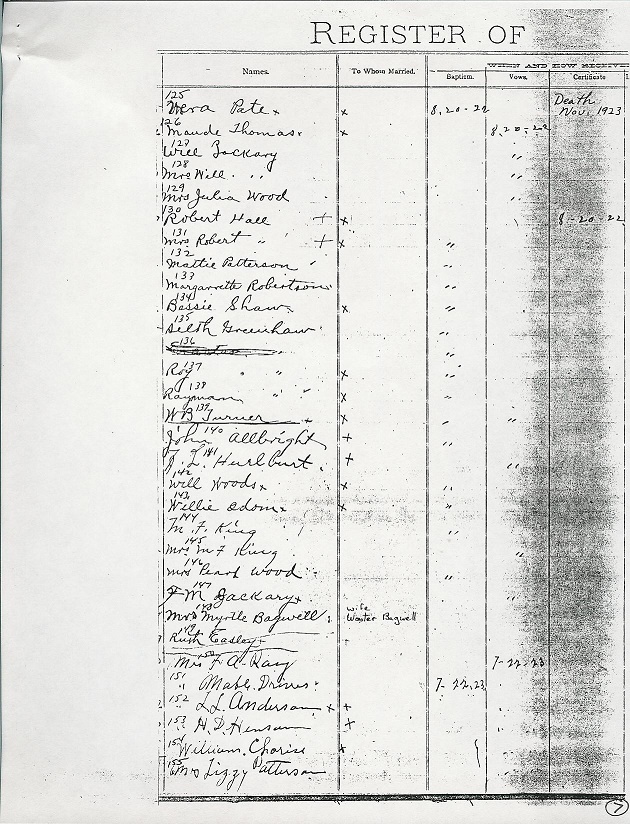 REGISTER OF
WHEN AND HOW RECEIV
Names.
To Whom Married.
Baptism.
Vows.
Certificate
125
Vera Pate x x 8.20-22 Death
Nov. 1923
126
Maude Thomas x x 8.20-22
127
Will Zackary "
128
Mrs Will " " "
129
Mrs Julia Wood "
130
Robert Hall + x 8-20 22
131
Mrs Robert " + x "
132
Mattie Patterson "
133
Margarrette Robertson "
134
Bessie Shaw x x "
135
Greenhaw "
136
"
137
Roy " " x "
138
Rayman " " x "
139
W B Turner + x " "
140
John Allbright + "
141
J. L. Hurlburt. + "
142
Will Woods x x "
143
Willie Odom x x "
144
M. F. King "
145
Mrs M F King "
146
Mrs Pearl Wood "
147
M Zackary x "
148
Mrs Myrtle Bagwell wife
Waster Bagwell
149
Ruth Easley +
150
Mrs F. A. Ray 7-22-23
151
" Mable Drives 7-22.23
152
L L Anderson x +
153
H. D. Henson +
154
William. x
155
Mrs Lizzy Patterson
7